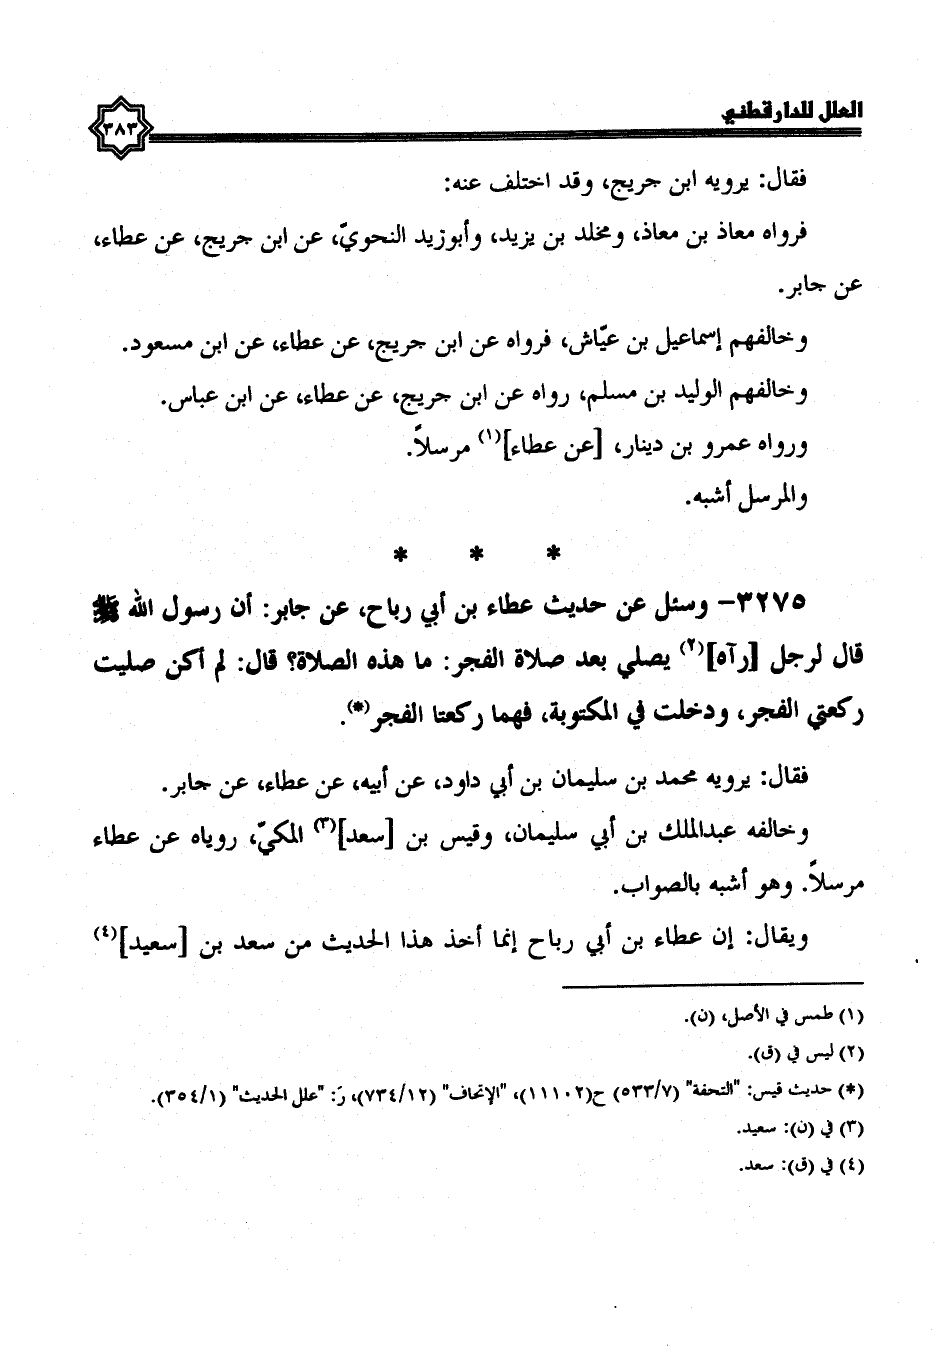 العلل للدارقطني
٣٨٣
فقال: يرويه ابن جريج، وقد اختلف عنه:
فرواه معاذ بن معاذ، ومخلد بن يزيد، وأبوزيد النحويّ، عن ابن جريج، عن عطاء،
عن جابر.
وخالفهم إسماعيل بن عيّاش، فرواه عن ابن جريج، عن عطاء، عن ابن مسعود.
وخالفهم الوليد بن مسلم، رواه عن ابن جريج، عن عطاء، عن ابن عباس.
ورواه عمرو بن دينار، [عن عطاء](١) مرسلاً.
والمرسل أشبه.
* * *
٣٢٧٥- وسئل عن حديث عطاء بن أبي رباح، عن جابر: أن رسول الله ﷺ
قال لرجل [رآه](٢) يصلي بعد صلاة الفجر: ما هذه الصلاة؟ قال: لم أكن صليت
ركعتي الفجر، ودخلت في المكتوبة، فهما ركعتا الفجر(*).
فقال: يرويه محمد بن سليمان بن أبي داود، عن أبيه، عن عطاء، عن جابر.
وخالفه عبدالملك بن أبي سليمان، وقيس بن [سعد](٣) المكيّ، روياه عن عطاء
مرسلاً. وهو أشبه بالصواب.
ويقال: إن عطاء بن أبي رباح إنما أخذ هذا الحديث من سعد بن [سعيد](٤)
(١) طمس في الأصل، (ن).
(٢) ليس في (ق).
(*) حديث قيس: "التحفة" (٥٣٣/٧) ح(١١١٠٢)، "الإتحاف" (٧٣٤/١٢)، رَ: "علل الحديث" (٣٥٤/١).
(٣) في (ن): سعيد.
(٤) في (ق): سعد.